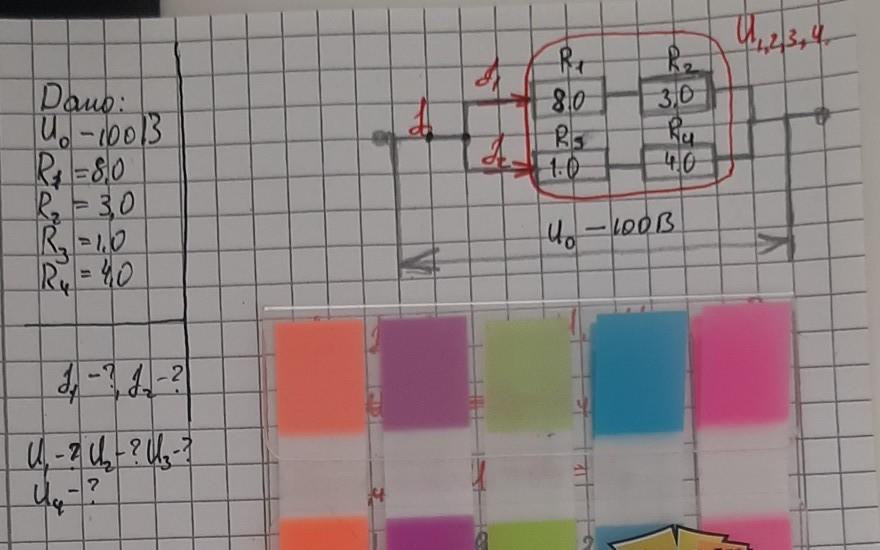 Дано:
U₀ - 100 В
R₁ = 8,0
R₂ = 3,0
R₃ = 1,0
R₄ = 4,0
J₁ - ?, J₂ - ?
U₁ - ? U₂ - ? U₃ - ?
U₄ - ?
U₁,₂,₃,₄.
R₁ R₂
J₁
8,0 3,0
J
R₃ R₄
J₂
1.0 4.0
U₀ - 100 В